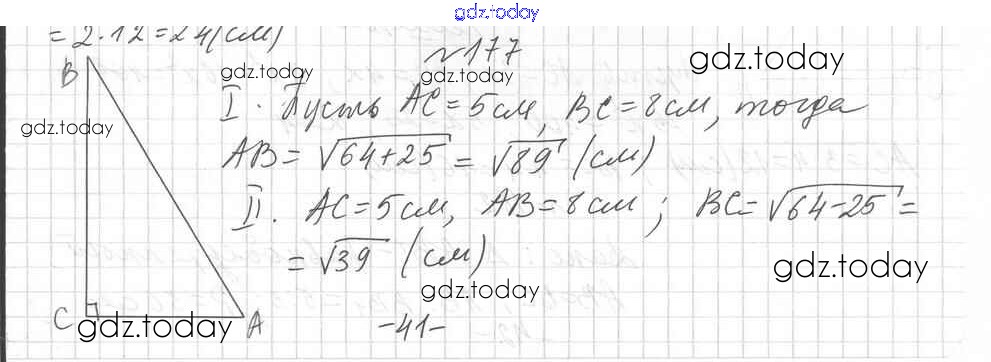 gdz.today
= 2·12 = 24 (см)
№177
gdz.today
gdz.today
gdz.today
B
I. Пусть AC = 5см, BC = 8см, тогда
gdz.today
AB = √64+25 = √89 (см)
II. AC = 5см, AB = 8см; BC = √64-25 =
= √39 (см)
gdz.today
gdz.today
C
A
gdz.today
-41-